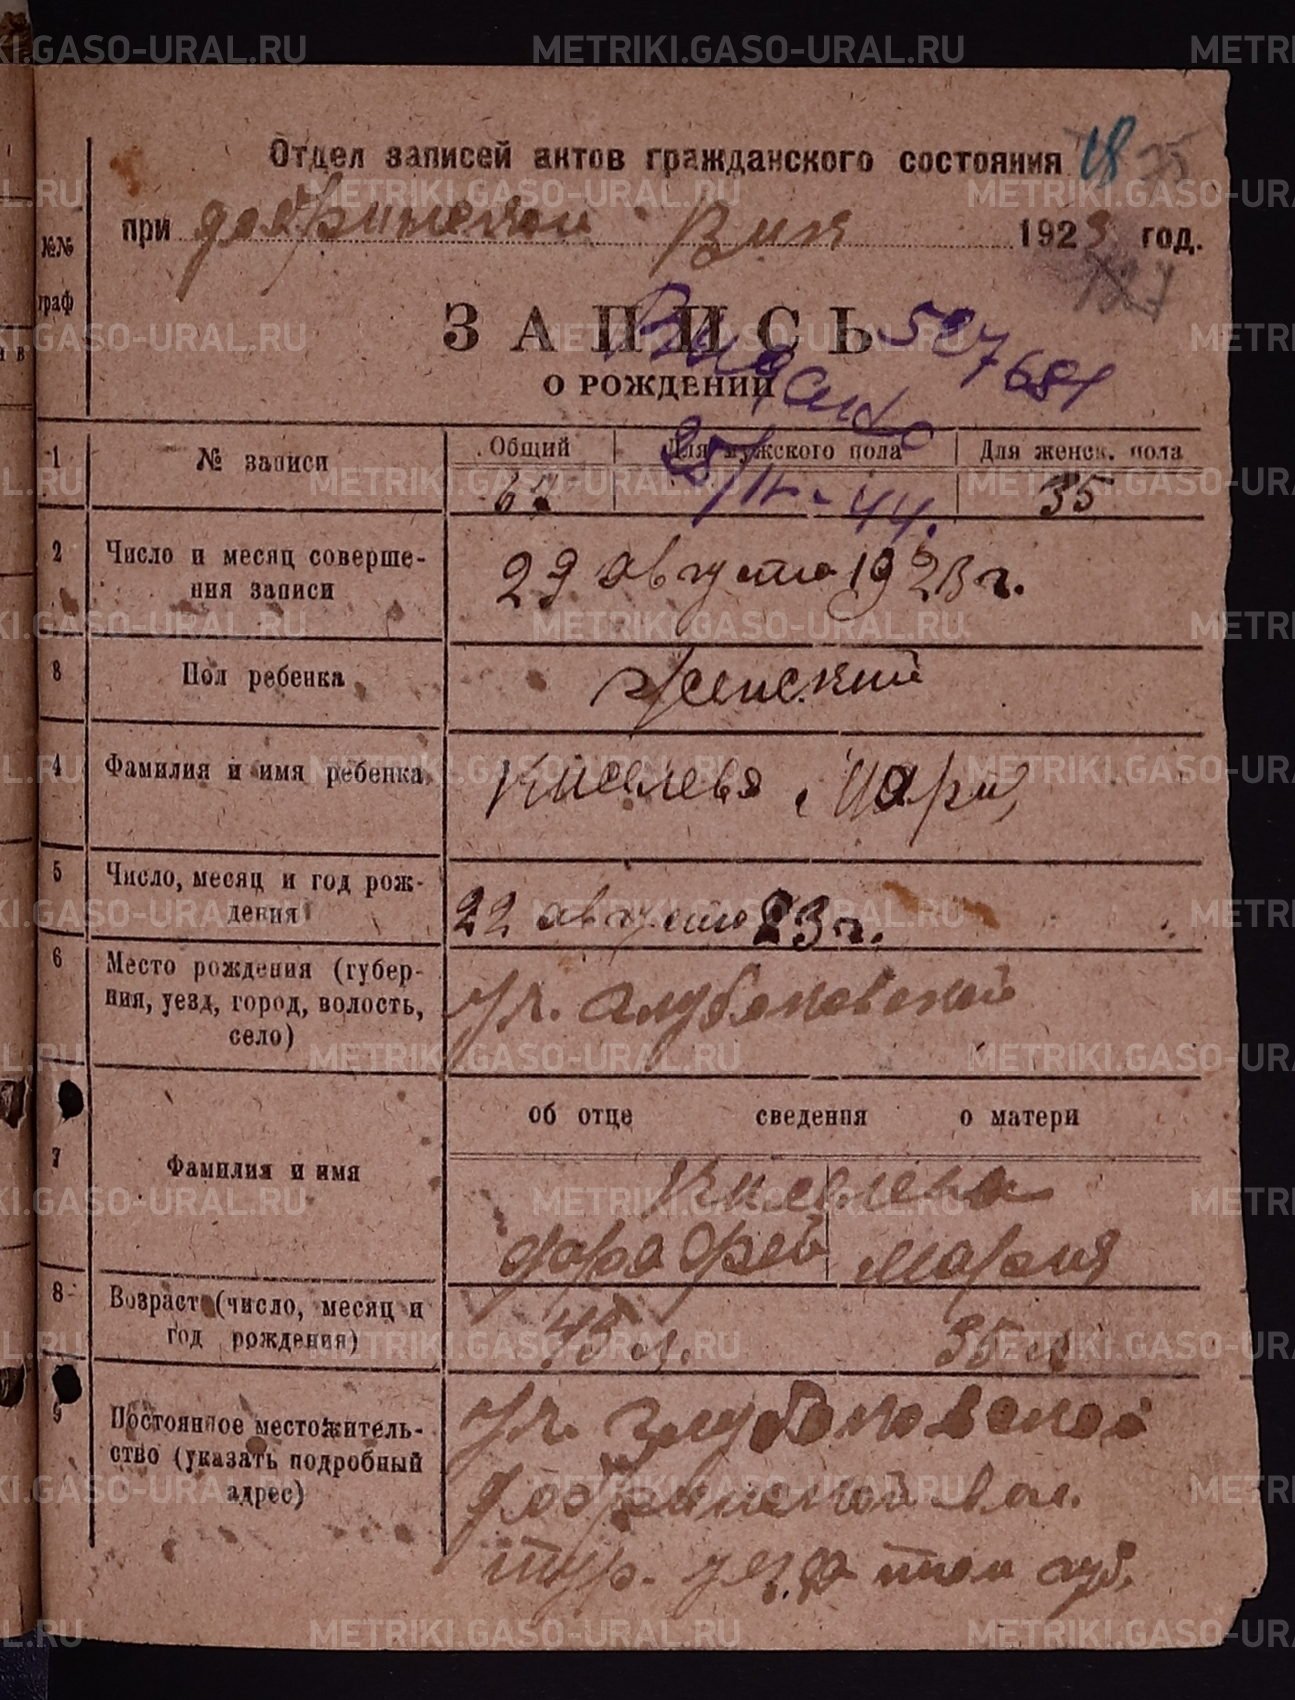 METRIKI.GASO-URAL.RU
Отдел записей актов гражданского состояния 18
при Добринской Вик 1923 год.
№№ граф
ЗАПИСЬ
О РОЖДЕНИИ
Выдано 527681
25/II-44.
1 № записи
Общий Для мужского пола Для женск. пола
67 35
2 Число и месяц соверше-
ния записи
29 августа 1923 г.
3 Пол ребенка женский
4 Фамилия и имя ребенка Киселева Мария
5 Число, месяц и год рож-
дения
22 августа 23 г.
6 Место рождения (губер-
ния, уезд, город, волость,
село)
уч. Глубоковской
об отце сведения о матери
7 Фамилия и имя
Киселева
Мария
8 Возраст (число, месяц и
год рождения)
45 л. 35 л
9 Постоянное местожитель-
ство (указать подробный
адрес)
уч. Глубоковской
Добринской вол.
тур. уез.
губ.